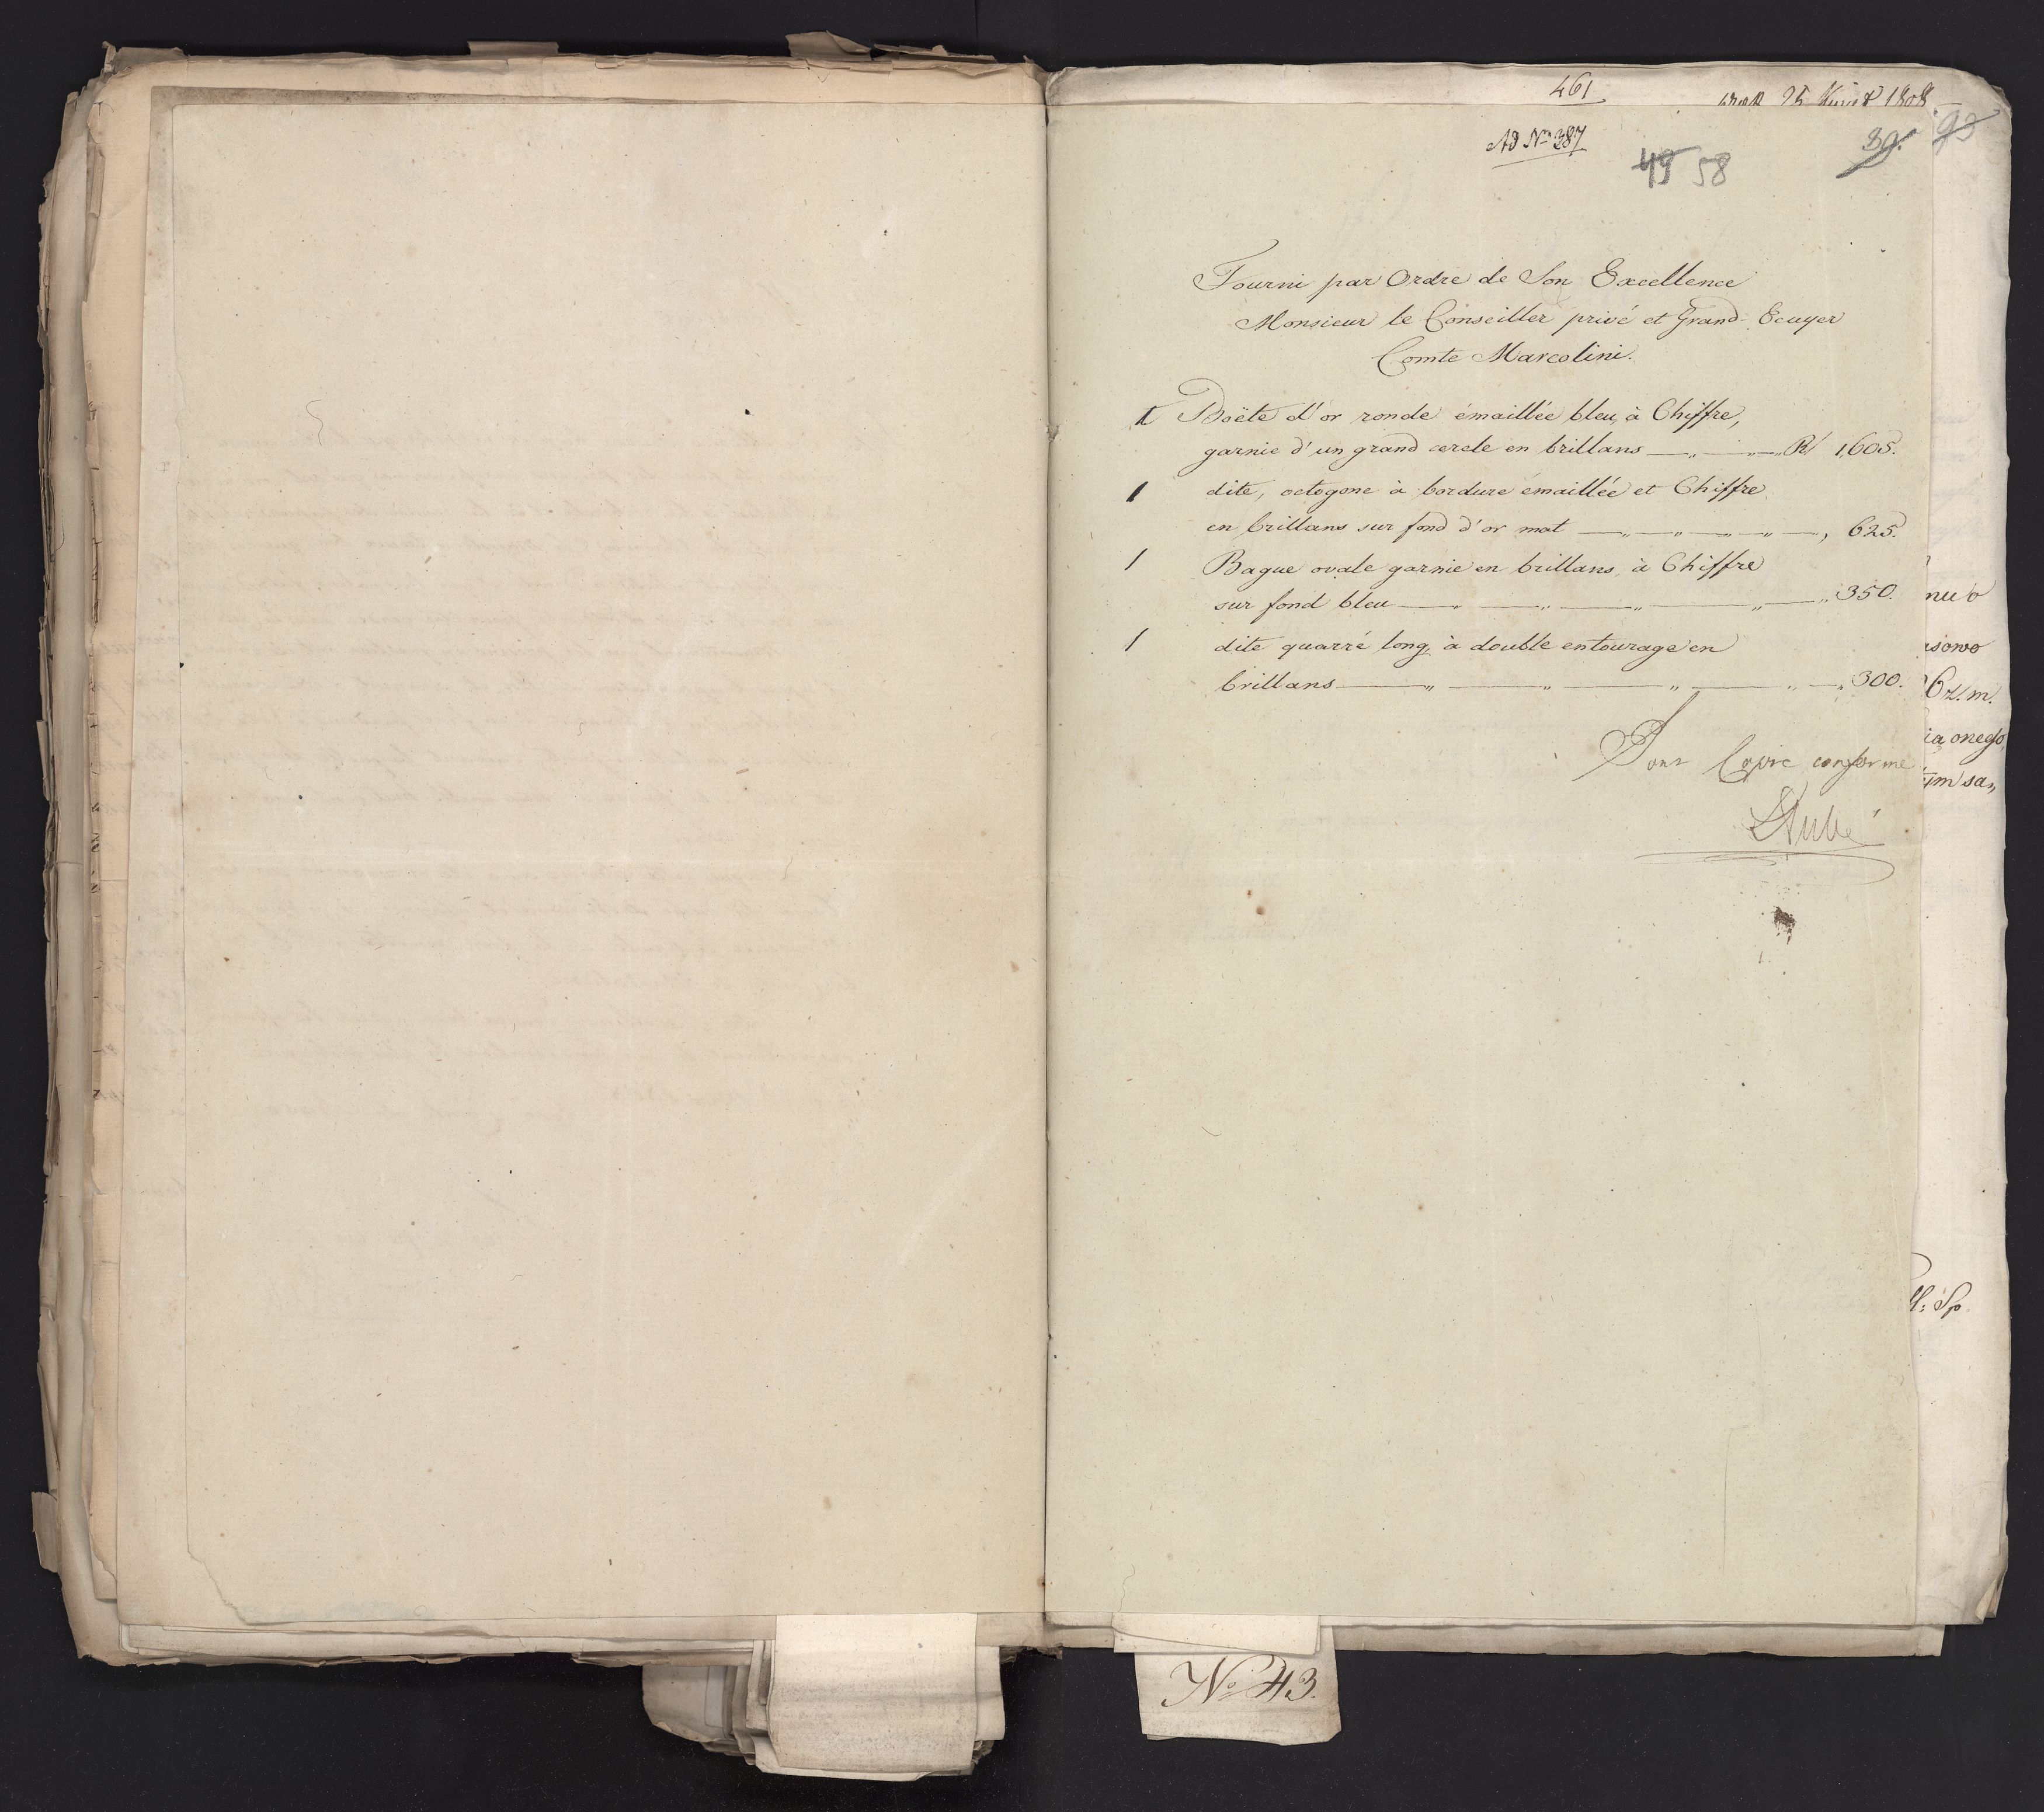 461
25 1808
Ad No 387
39. 93
49 58
Fourni par Ordre de Son Excellence
Monsieur le Conseiller privé et Grand-Ecuyer
Comte Marcolini.
1 Boëte d'or ronde émaillée bleu, à Chiffre,
garnie d'un grand cercle en brillans —„—„— R/ 1,605.
1 dite, octogone à bordure émaillée et Chiffre
en brillans sur fond d'or mat —„—„—„—„—, 625.
1 Bague ovale garnie en brillans, à Chiffre
sur fond bleu —„—„—„—„—„ 350.
1 dite quarré long, à double entourage en
brillans —„—„—„—„—„ 300.
Pour Copie conforme
nuo
sowo
6z. m.
ia onego
ym sa„
No 43.